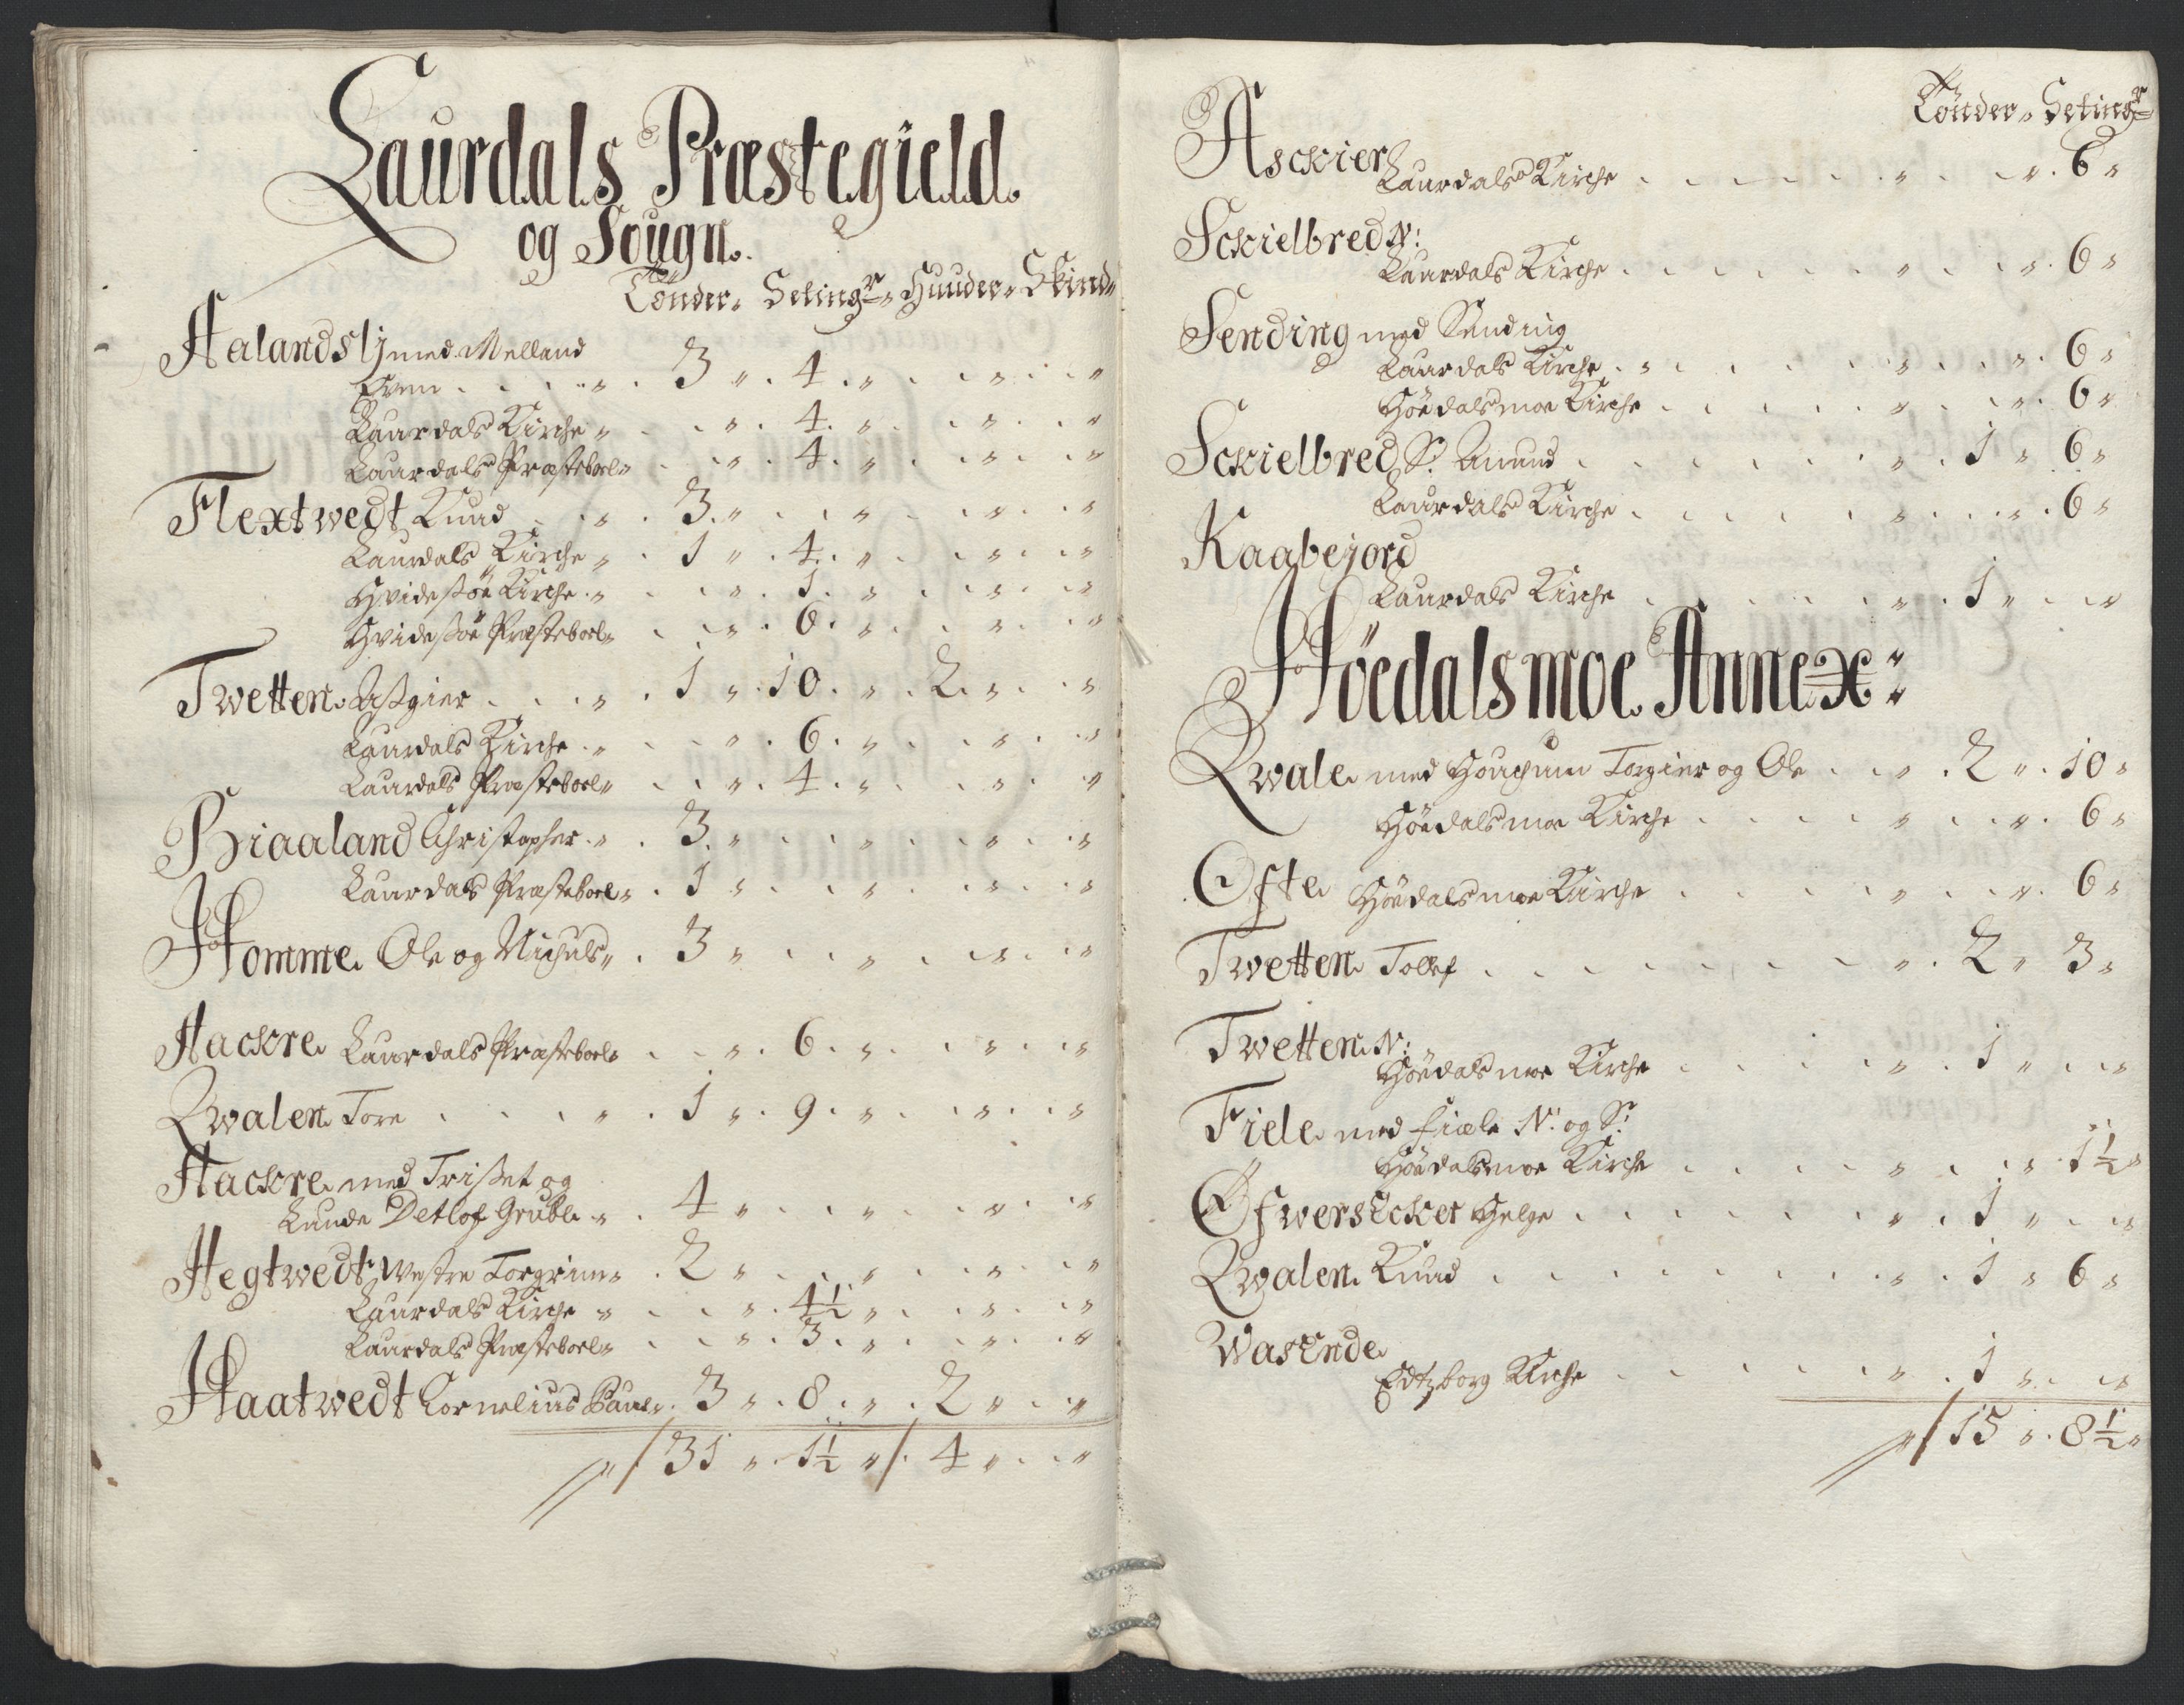 Laurdals Præstegield.
og Sougn.
Tönder„ Setingr„ Huuder„ Skind„
Aalandslj med Melland
Even . . . „ . 3 „ . 4 . „ . . „ . . „
Laurdals Kirche „ . . „ . 4 . „ . . „ . . „
Laurdals Præsteboel„ . . „ . 4 . „ . . „ . . „
Flextwedt Knud . . „ . 3 . „ . . „ . . „ . . „
Laurdals Kirche „ . 1 „ . 4 . „ . . „ . . „
Hvidesöe Kirche . „ . . „ . 1 . „ . . „ . . „
Hvidesöe Præsteboel„ . . „ . 6 . „ . . „ . . „
Twetten Asgier . . . „ . 1 „ . 10 . „ . 2 . „ . . „
Laurdals Kirche . „ . . „ . 6 . „ . . „ . . „
Laurdals Præsteboel„ . . „ . 4 . „ . . „ . . „
Biaaland Christopher . „ . 3 . „ . . „ . . „ . . „
Laurdals Præsteboel„ . 1 „ . . „ . . „ . . „
Homme Ole og Nichuls„ . 3 „ . . „ . . „ . . „
Aackre Laurdals Præsteboel„ . . „ . 6 . „ . . „ . . „
Qvalen Tore . . . „ . 1 „ . 9 . „ . . „ . . „
Aackre med Triset og
Lunde Detlof Grubbe . „ . 4 „ . . „ . . „ . . „
Hegtwedt Westre Torgrim„ . 2 „ . . „ . . „ . . „
Laurdals Kirche „ . . „ . 4½ „ . . „ . . „
Laurdals Præsteboel„ . . „ . 3 . „ . . „ . . „
Haatwedt Cornelius Paul„ . 3 „ . 8 . „ . 2 „ . . „
„ / 31 „ . 1½ „ / . 4 „ . . „
Tönder„ Setingr
Asckier
Laurdals Kirche . . . . . „ . . „ . 6 „
Sckielbred N:
Laurdals Kirche . . . . . „ . . „ . 6 „
Sending med Sending
Laurdals Kirche . . . . . „ . . „ . 6 „
Höedalsmoe Kirche . . . . . „ . . „ . 6 „
Sckielbred S: Amund . . . . . „ . 1 „ 6 „
Laurdals Kirche . . . . . „ . . „ . 6 „
Kaabejord
Laurdals Kirche . . . . . „ . 1 „ . . „
Höedalsmoe Annex:
Qwale med Torgier og Ole . . „ . 2 „ . 10 „
Höedalsmoe Kirche . . . . „ . . „ . 6 „
Ofte Höedalsmoe Kirche . . . . „ . . „ . 6 „
Twetten Tollef . . . . . . . „ . 2 „ 3 „
Twetten N:
Höedalsmoe Kirche . . . . „ . 1 „ . . „
Fiele med Fiæle N: og S:
Höedalsmoe Kirche . . . . „ . . „ . 1½ „
Öfwersecket Helge . . . . . . „ . 1 „ . . „
Qwalen Knud . . . . . . . „ . 1 „ 6 „
Wasende
Edtzborg Kirche . . . . . „ . 1 „ . . „
„ / 15 „ . 8½ „